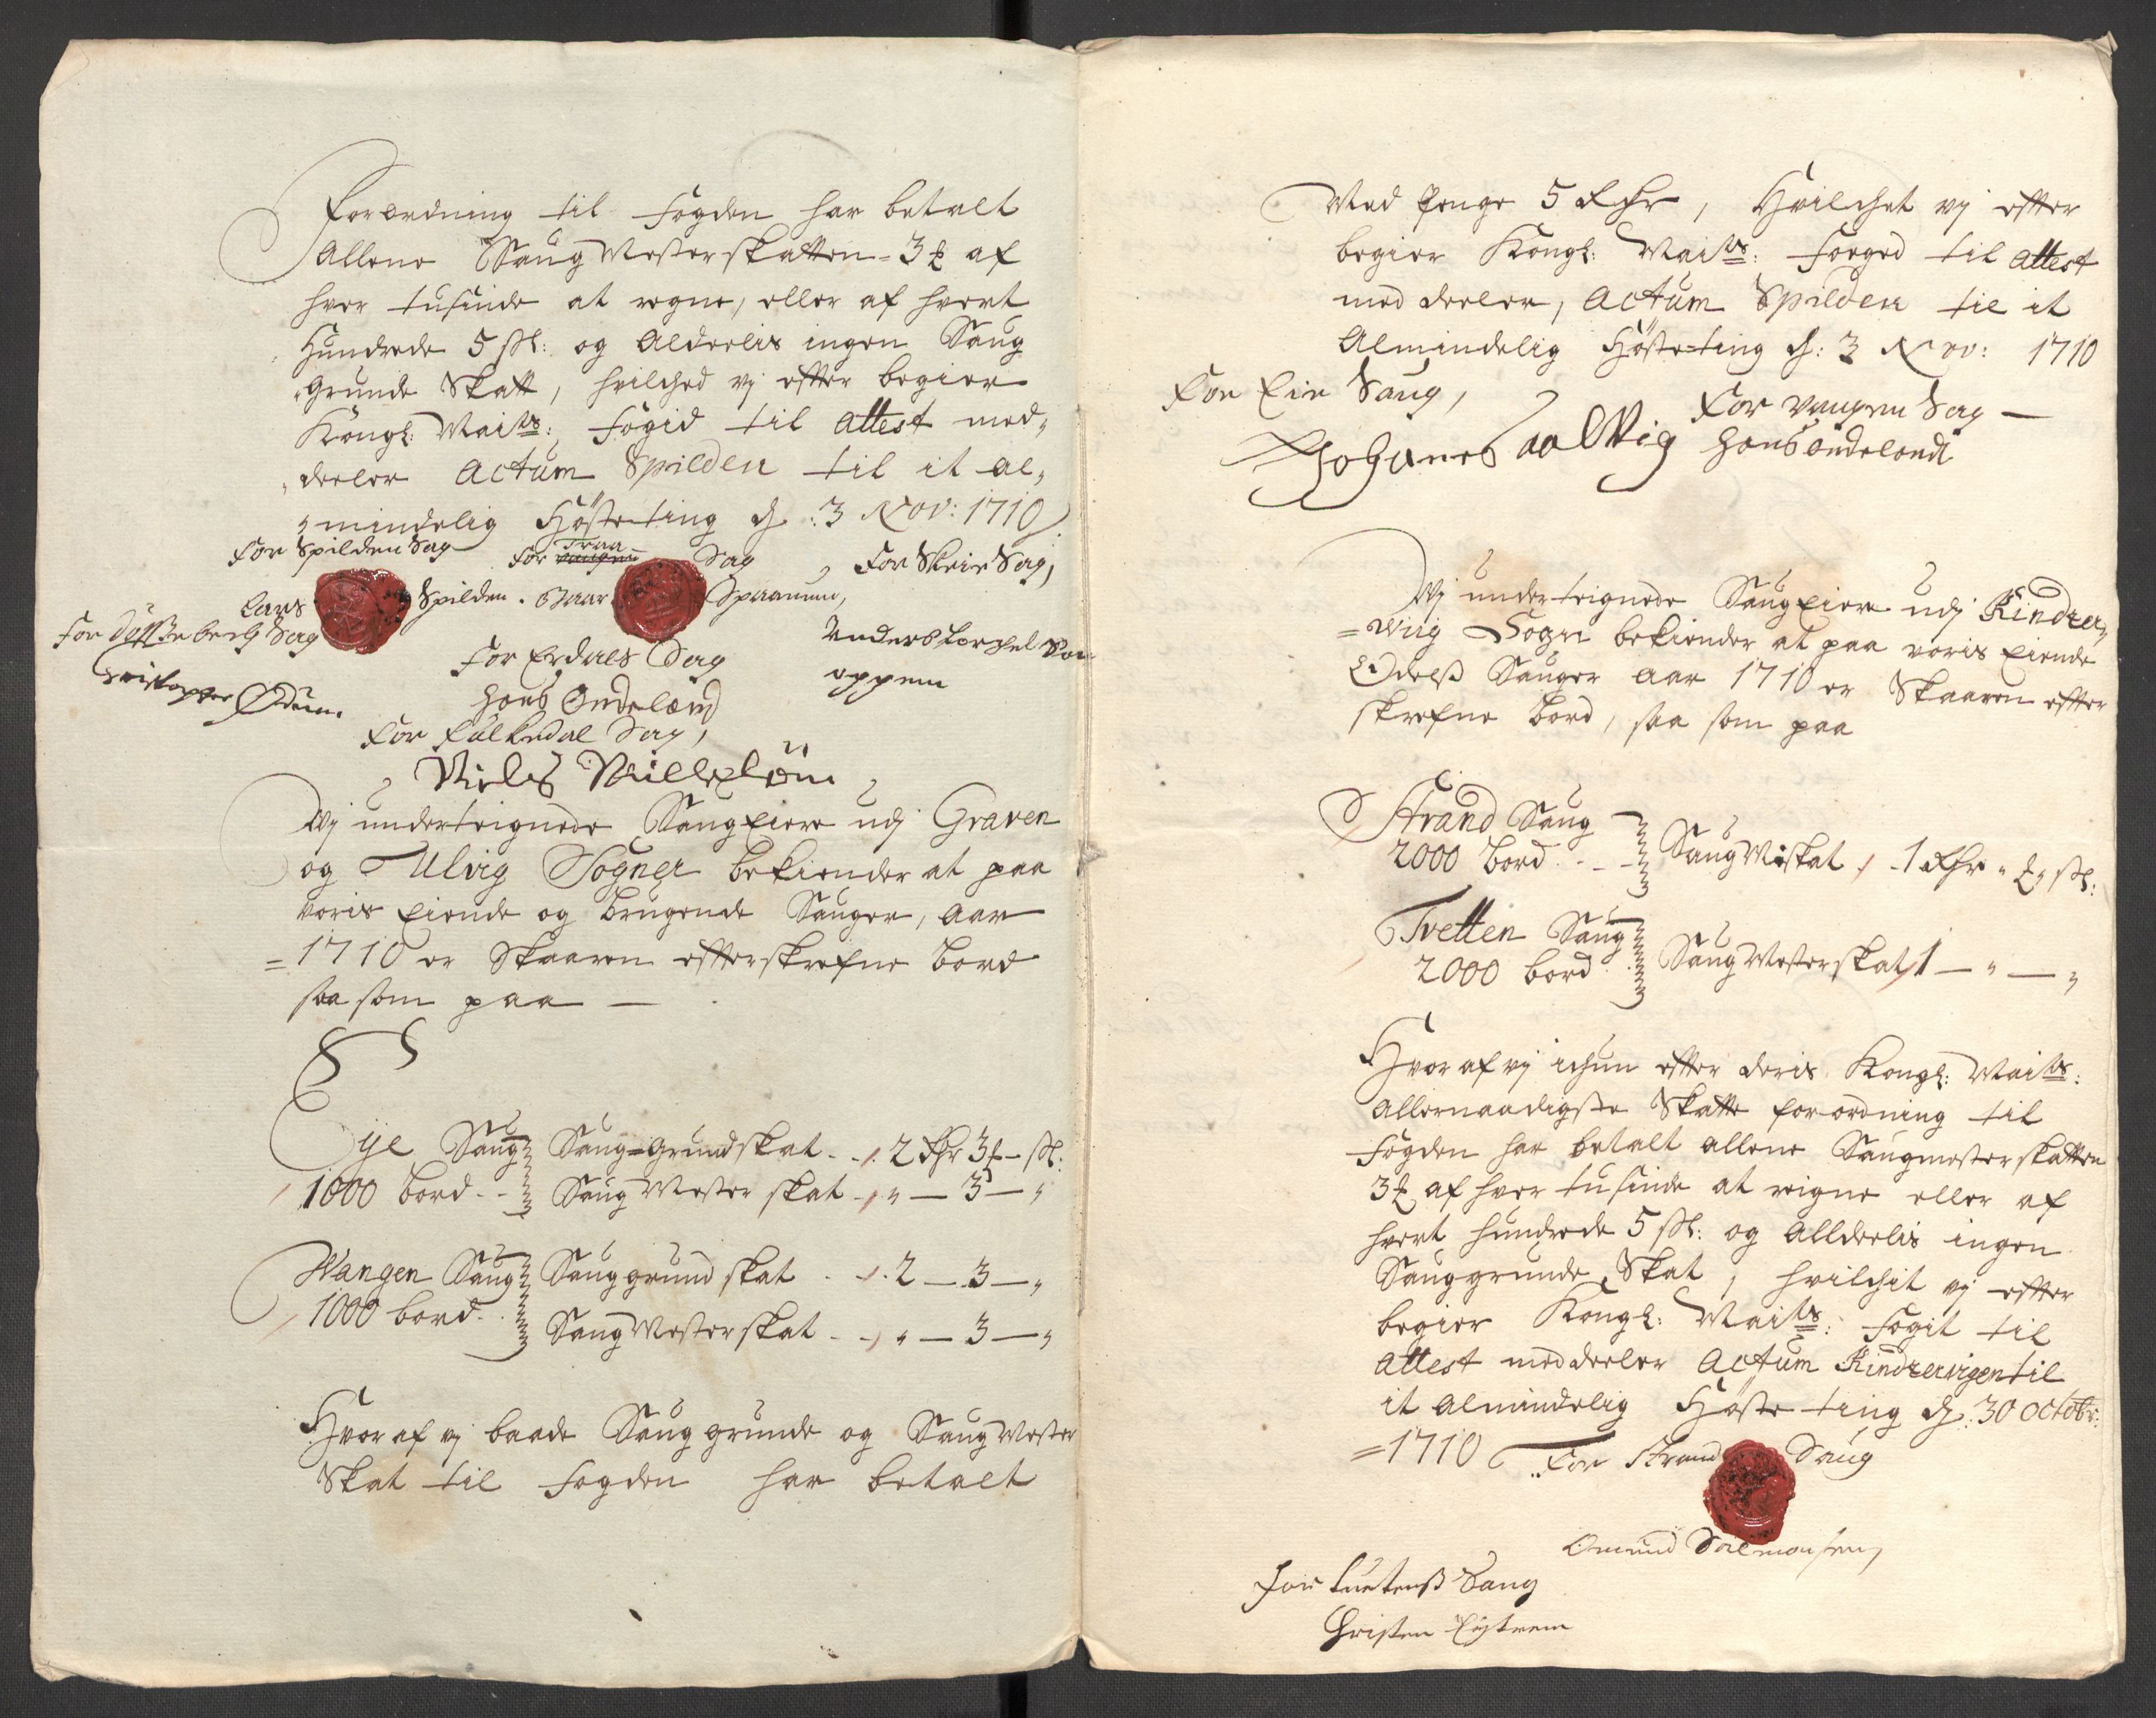 forordning til fogden har betalt
Allene Saug Mesterskatten 3 ₰ af
hver tusinde at regne, eller af hvert
Hundrede 5 sk: og Alderlis ingen Saug
Grunde Skatt, hvilched vj efter begier
Kongl: Maits: fogid til attest med¬
deeler Actum Spilden til it al¬
mindelig Høsteting d: 3 Nov: 1710
For Spilden Sag
for Traa Sag
For Skeie Sag,
Lars Spilden. Iffuar Spaanem,
For Døssebærg Sag
Anders Torchel
For Erdals Sag
Oppem
Hans Ondeland
For Fulkedal Sag,
Niels
Vj underteignede Saug Eiere udj Graven
og Ulvig Sogner bekiender at paa
voris Eiende og brugende Sauger, Aar
=1710 er Skaaren efterskrefne bord
saa som paa —
Eye Saug Saug-Grundskat - 2 Rdr 3 ₰ - sk:
1000 bord - - Saug Mester skat - „ — 3 — „
Wangen Saug Saug grund skat - 2 — 3 — „
1000 bord - Saug Mester skat - - „ — 3 — „
Hvor af vj baade Saug grunde og Saug Mester
Skat til fogden har betalt
Med Penge 5 Rdr, Hvilchet vj efter
begier Kongl: Maits: foeged til attest
med deeler, Actum Spilden til it
Almindelig Høste-ting d: 3 Nov: 1710
For Eie Saug,
For Vangen Sag —
Johanes Aalvig Hans Ondeland
Vj underteignede Saug Eiere udj Kindzer¬
=Wiig Sogn bekiender at paa voris Eiende
Odels Sauger Aar 1710 er Skaaren efter
skrefne bord, saa som paa
Strand Saug
2000 bord - - Saug Mskat - 1 Rdr „ ₰ „ sk:
Tvetten Saug
2000 bord - Saug Mester skat 1 — „ — „
Hvor af vj ichun efter deris Kongl: Maits:
Allernaadigste Skatte forordning til
fogden har betalt allene Saugmester skatten
3 ₰ af hver tusinde at reigne eller af
hvert hundrede 5 sk: og Allderlis ingen
Sauggrunde Skat, hvilchit vj efter
begier Kongl: Maits: fogit til
attest meddeeler Actum Kindzervigen til
it Almindelig Høste ting d: 30 Octobr:
=1710
For Strand Saug
Omund Salmonsen,
for Tuetens Saug
Christen Eystrem